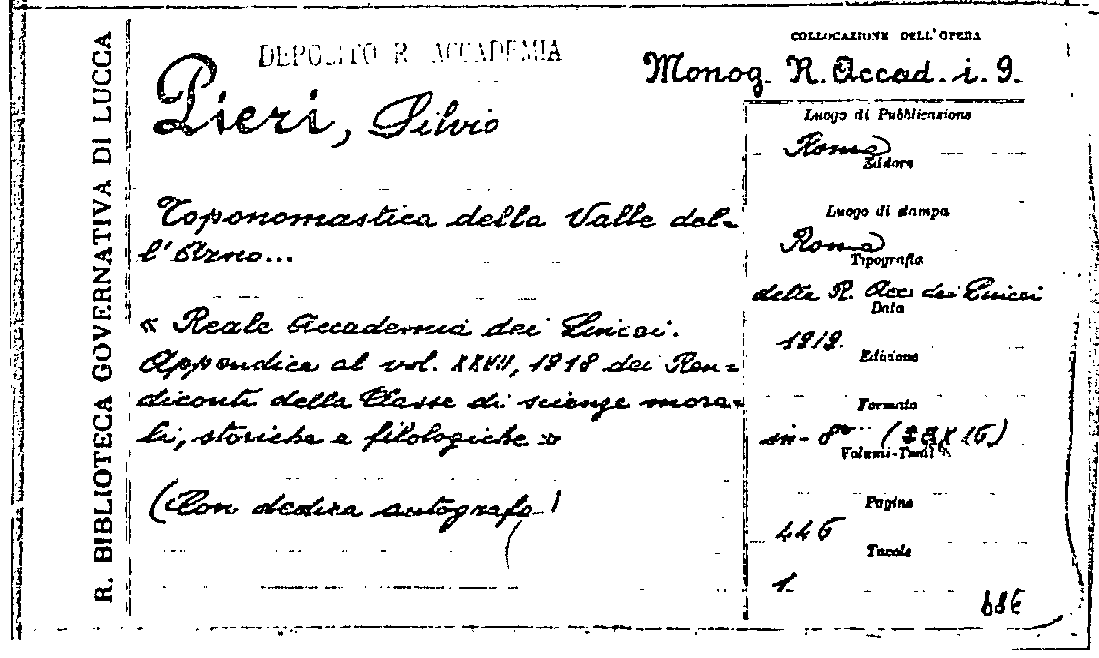 R. BIBLIOTECA GOVERNATIVA DI LUCCA
DEPOSITO R. ACCADEMIA
COLLOCAZIONE DELL'OPERA
Monog. R. Accad. i. 9.
Pieri, Silvio
Toponomastica della Valle del=
l'Arno...
« Reale Accademia dei Lincei.
Appendice al vol. XXVII, 1918 dei Ren=
diconti della Classe di scienze mora=
li, storiche e filologiche »
(Con dedica autografa)
Luogo di Pubblicazione
Roma
Editore
Luogo di stampa
Roma
Tipografia
della R. Acc. dei Lincei
Data
1919.
Edizione
Formato
in-8° (28X16)
Volumi-Tomi
Pagine
446
Tavole
1.